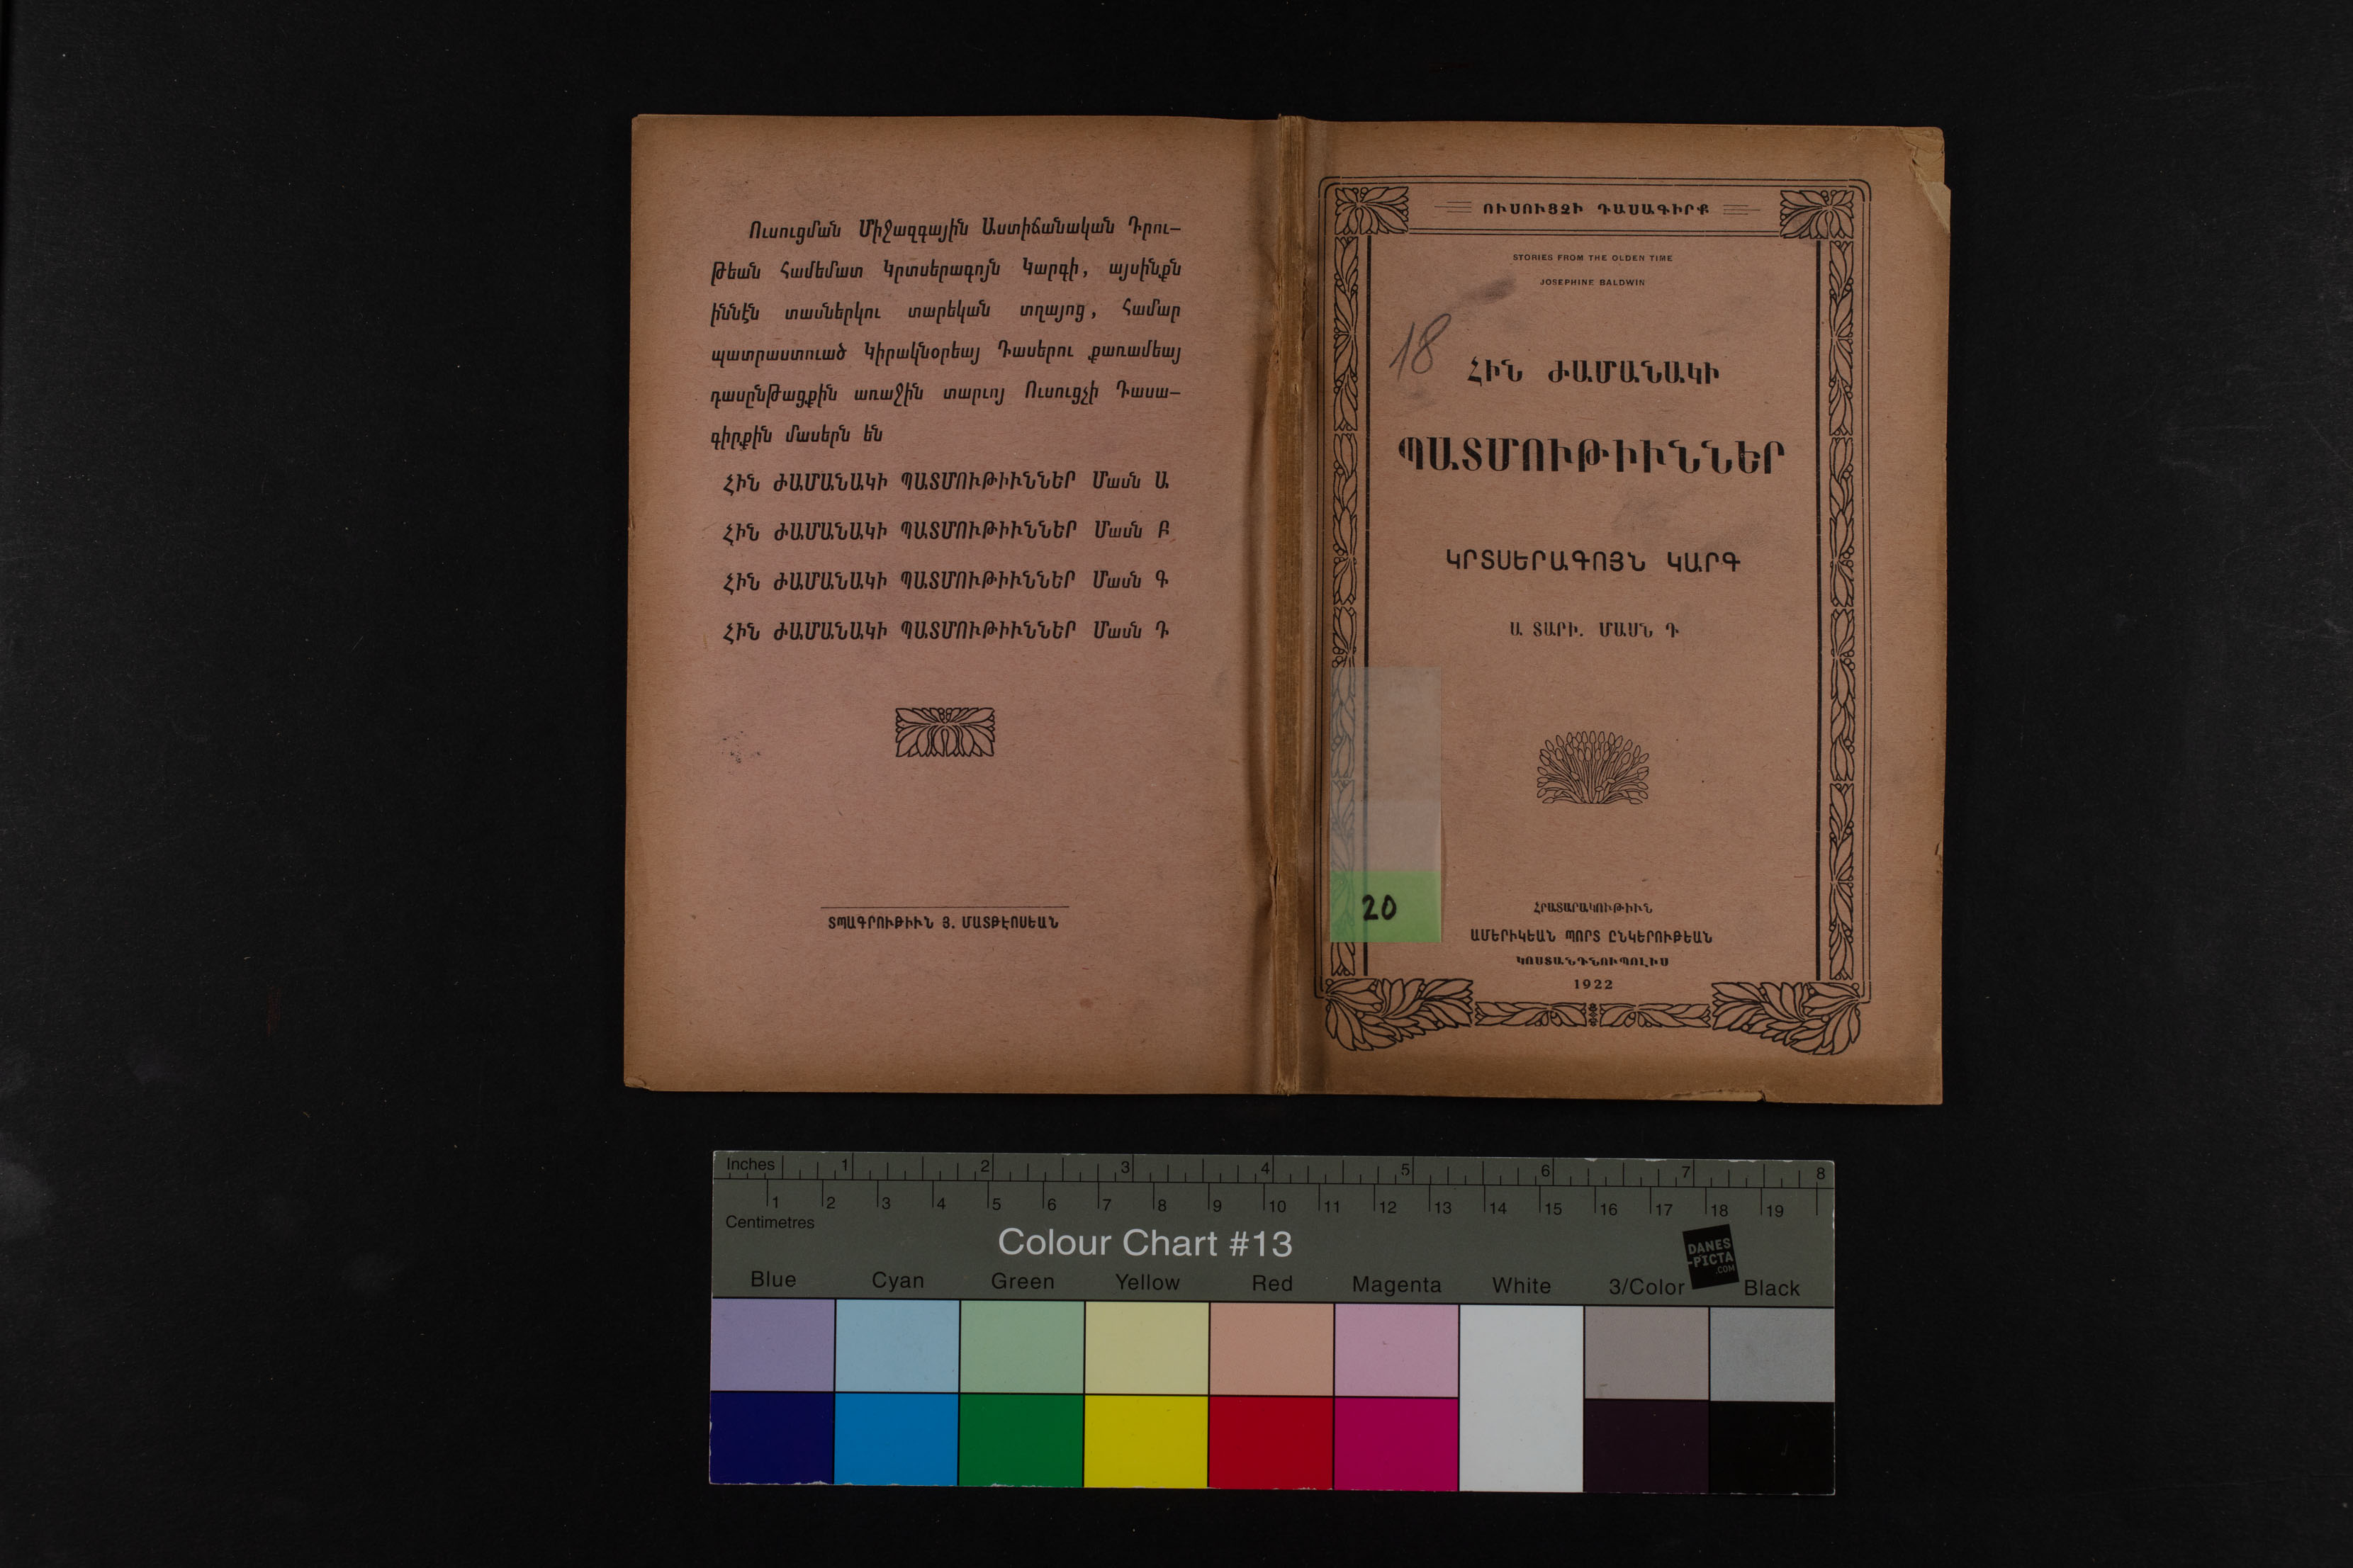 Ուսուցման Միջազգային Աստիճանական Դրու-
թեան համեմատ Կրտսերագոյն Կարգի, այսինքն
իննէն տասներկու տարեկան տղայոց, համար
պատրաստուած Կիրակնօրեայ Դասերու քառամեայ
դասընթացքին առաջին տարւոյ Ուսուցչի Դասա-
գիրքին մասերն են
ՀԻՆ ԺԱՄԱՆԱԿԻ ՊԱՏՄՈՒԹԻՒՆՆԵՐ Մասն Ա
ՀԻՆ ԺԱՄԱՆԱԿԻ ՊԱՏՄՈՒԹԻՒՆՆԵՐ Մասն Բ
ՀԻՆ ԺԱՄԱՆԱԿԻ ՊԱՏՄՈՒԹԻՒՆՆԵՐ Մասն Գ
ՀԻՆ ԺԱՄԱՆԱԿԻ ՊԱՏՄՈՒԹԻՒՆՆԵՐ Մասն Դ
ՏՊԱԳՐՈՒԹԻՒՆ Յ. ՄԱՏԹԷՈՍԵԱՆ
ՈՒՍՈՒՑՉԻ ԴԱՍԱԳԻՐՔ
STORIES FROM THE OLDEN TIME
JOSEPHINE BALDWIN
18
ՀԻՆ ԺԱՄԱՆԱԿԻ
ՊԱՏՄՈՒԹԻՒՆՆԵՐ
ԿՐՏՍԵՐԱԳՈՅՆ ԿԱՐԳ
Ա ՏԱՐԻ. ՄԱՍՆ Դ
20
ՀՐԱՏԱՐԱԿՈՒԹԻՒՆ
ԱՄԵՐԻԿԵԱՆ ՊՈՐՏ ԸՆԿԵՐՈՒԹԵԱՆ
ԿՈՍՏԱՆԴՆՈՒՊՈԼԻՍ
1922
Inches 1 2 3 4 5 6 7 8
1 2 3 4 5 6 7 8 9 10 11 12 13 14 15 16 17 18 19
Centimetres
Colour Chart #13
DANES
-PICTA
.COM
Blue Cyan Green Yellow Red Magenta White 3/Color Black